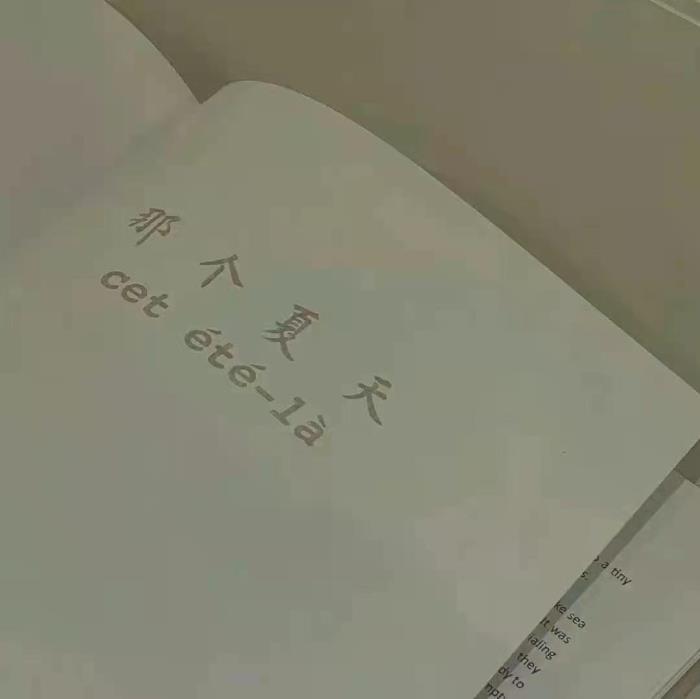 那个夏天
cet été-là
a tiny
s.
ke sea
it was
ialing
they
dy to
mpt